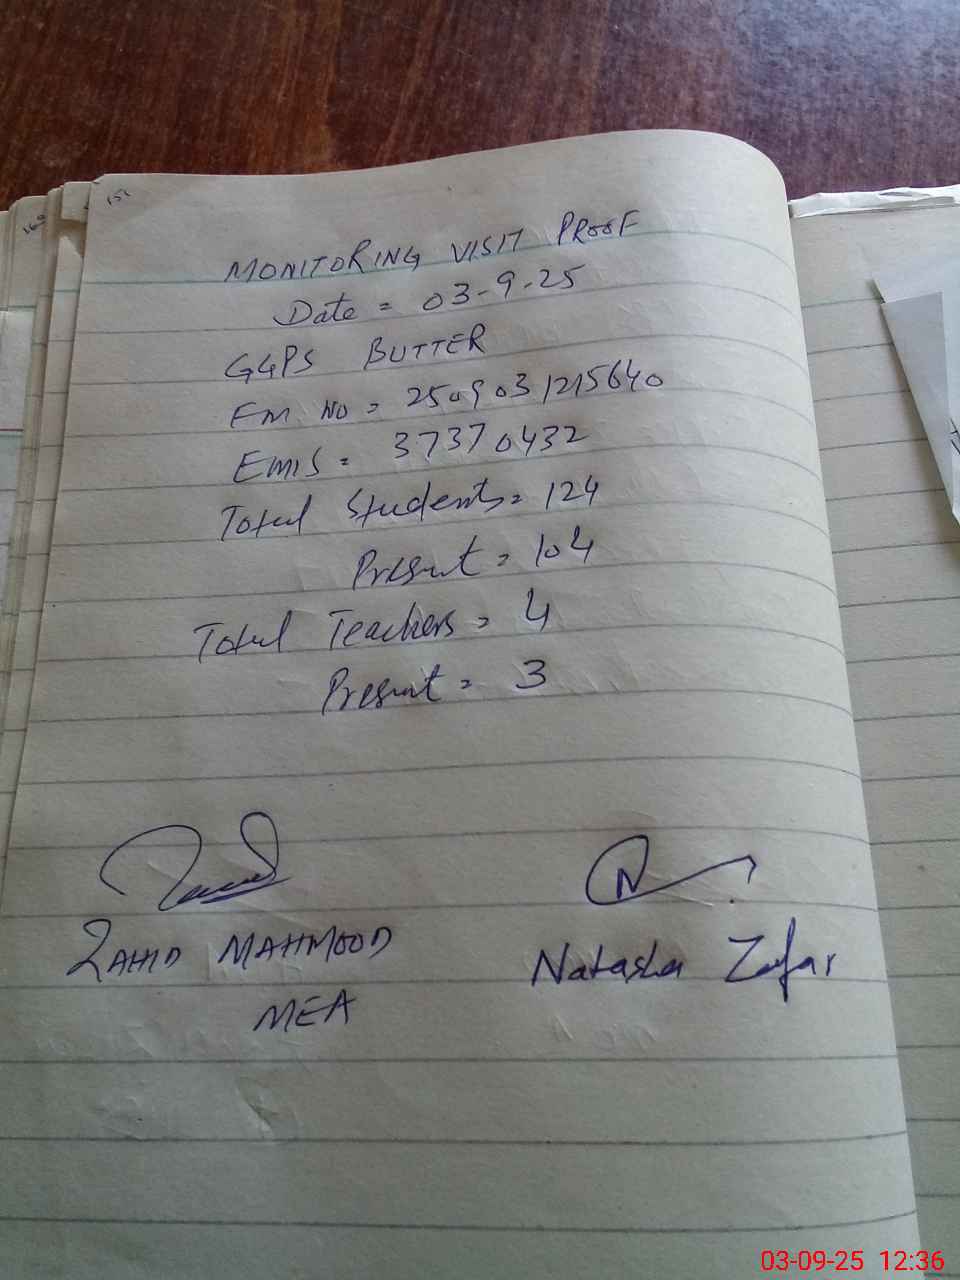 151
160
MONITORING VISIT PROOF
Date = 03-9-25
GGPS BUTTER
EM. NO = 2509031215640
EMIS = 37370432
Total Students = 124
Present = 104
Total Teachers = 4
Present = 3
ZAHID MAHMOOD
MEA
Natasha Zafar
03-09-25 12:36